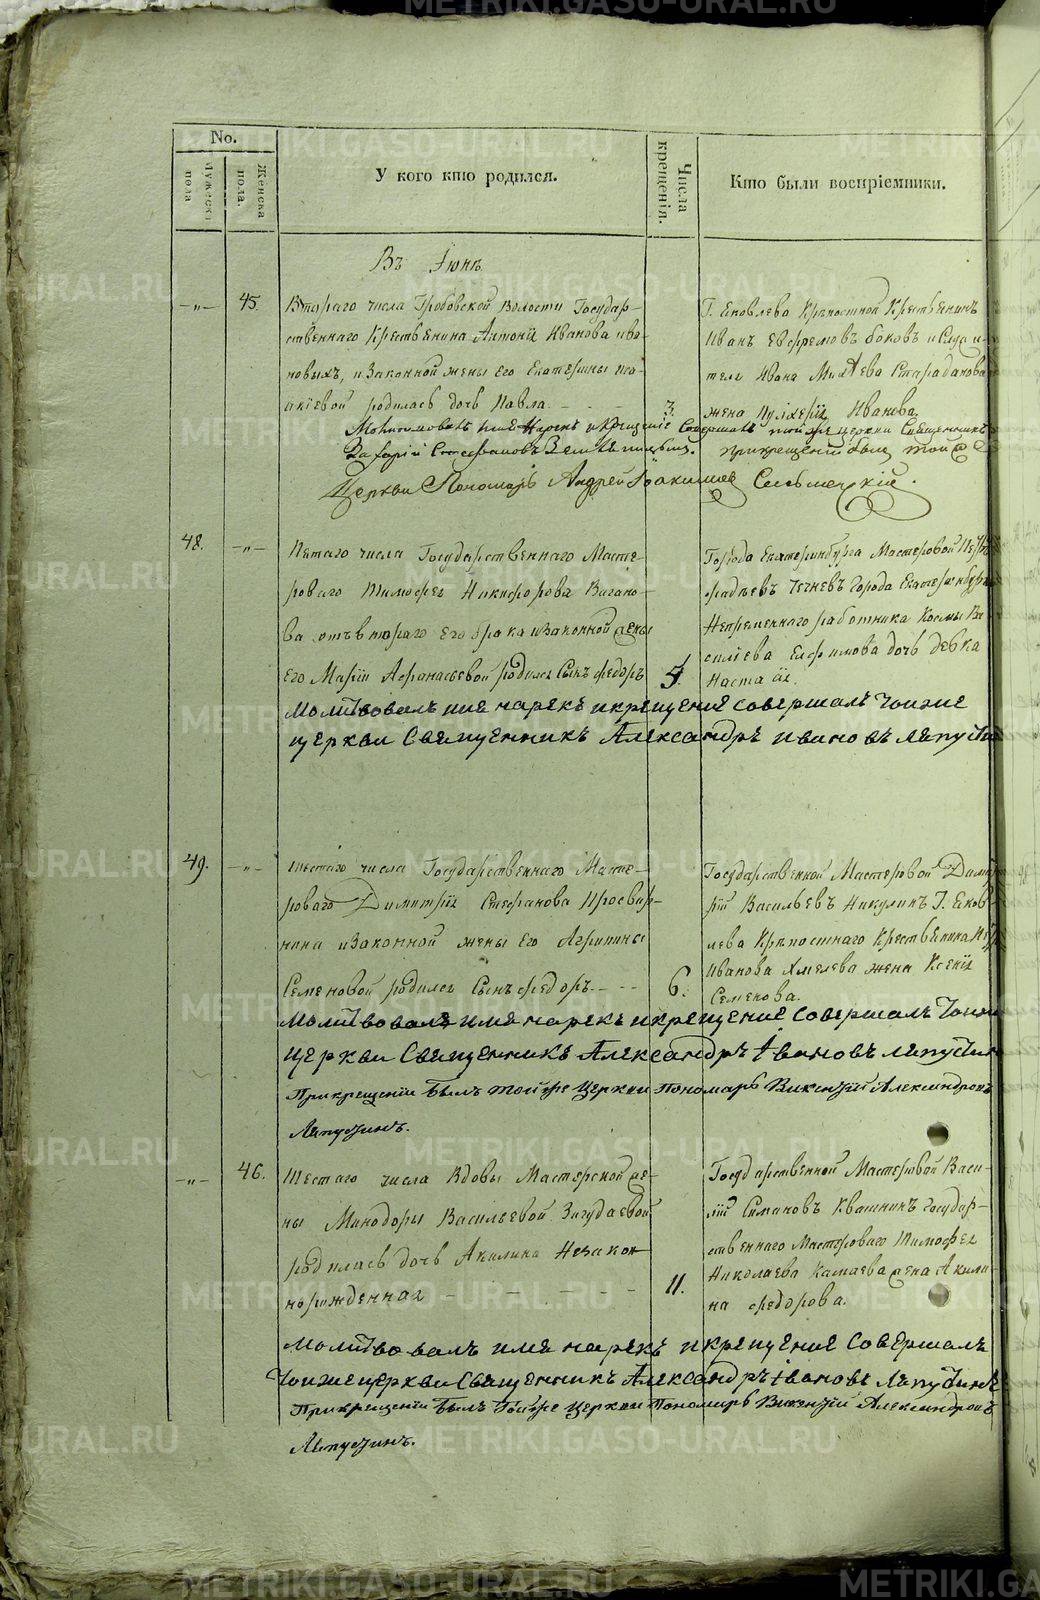 No.
Мужеска пола
Женска пола.
У кого кто родился.
Числа крещенія.
Кто были воспріемники.
Въ Іюнѣ
—„— 45. Втораго числа Гробовской волости Государ-
ственнаго Крестьянина Антонія Иванова
новыхъ, и законной жены его Екатерины
акіевой родилась дочь Павла. 3.
Г. Яковлева Крѣпостной Крестьянинъ
Иванъ Евфремовъ Боковъ и
теля Ивана
жена Пулхерія Иванова
Молитвовалъ имя нарекъ и крещеніе совершалъ той же церкви Священникъ
Захарій Стефановъ При крещеніи былъ той же
Церкви Пономарь Андрей Іоакимов
48. —„— Пятаго числа Государственнаго Масте-
роваго Тимофея Никифорова Вагано-
ва отъ втораго его брака и законной жены
его Маріи Афанасьевой родился Сынъ Феодоръ 5.
Города Екатеринбурга Мастеровой
города Екатеринбурга
Непременнаго работника Космы Ва
силіева Ефимова дочь девка
Настасія.
Молитвовалъ имя нарекъ и крещение совершалъ тоиже
церкви Священникъ Александръ Ивановъ Ляпустин
49. —„— Шестаго числа Государственнаго Масте-
роваго Димитрія Стефанова Просвир-
нина и законной жены его Агрипины
Семеновой родился Сынъ Феодоръ. 6.
Государственной Мастеровой Дими
рій Васильевъ Никулинъ Г. Яков-
лева Крѣпостнаго Крестьянина
Иванова Хмелева жена Ксенія
Семенова.
Молитвовалъ имя нарекъ и крещение совершалъ тоиже
церкви Священникъ Александръ Івановъ Ляпустин
При крещеніи былъ той же Церкви Пономарь Викентій Александровъ
Ляпустинъ.
—„— 46. Шестаго числа Вдовы Мастерской же-
ны Минодоры Васильевой Зигудаевой
родилась дочь Акилина Незакон
норожденная 11.
Государственной Мастеровой Васи-
лій Симановъ Квашнинъ Государ-
ственнаго Мастероваго Тимофея
Николаева Камаева жена Акили-
на Федорова.
Молитвовалъ имя нарекъ и крещение совершалъ
тоиже церкви Священникъ Александръ Івановъ Ляпустинъ
При крещеніи былъ той же Церкви Пономарь Викентій Александровъ
Ляпустинъ.
METRIKI.GASO-URAL.RU